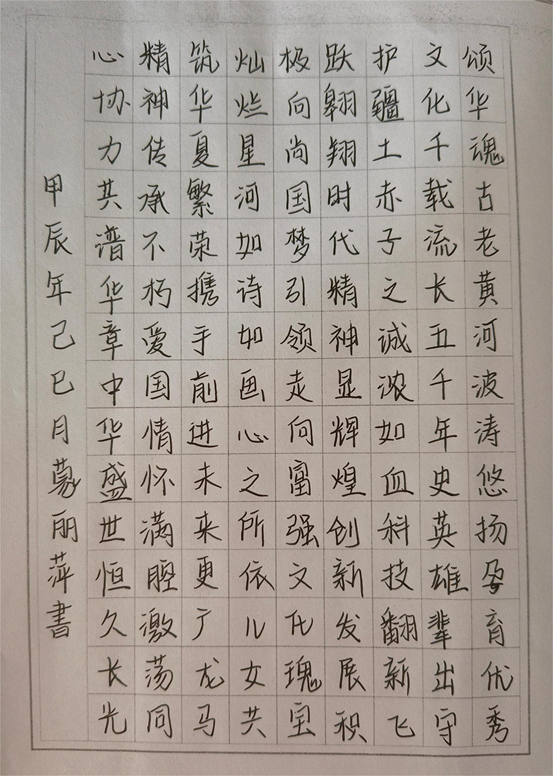 颂华魂古老黄河波涛悠扬孕育优秀
文化千载流长五千年史英雄辈出守
护疆土赤子之诚浓如血科技翻新飞
跃翱翔时代精神显辉煌创新发展积
极向尚国梦引领走向富强文化瑰宝
灿烂星河如诗如画心之所依儿女共
筑华夏繁荣携手前进未来更广龙马
精神传承不朽爱国情怀满腔激荡同
心协力共谱华章中华盛世恒久长光
甲辰年己巳月蒙丽萍書